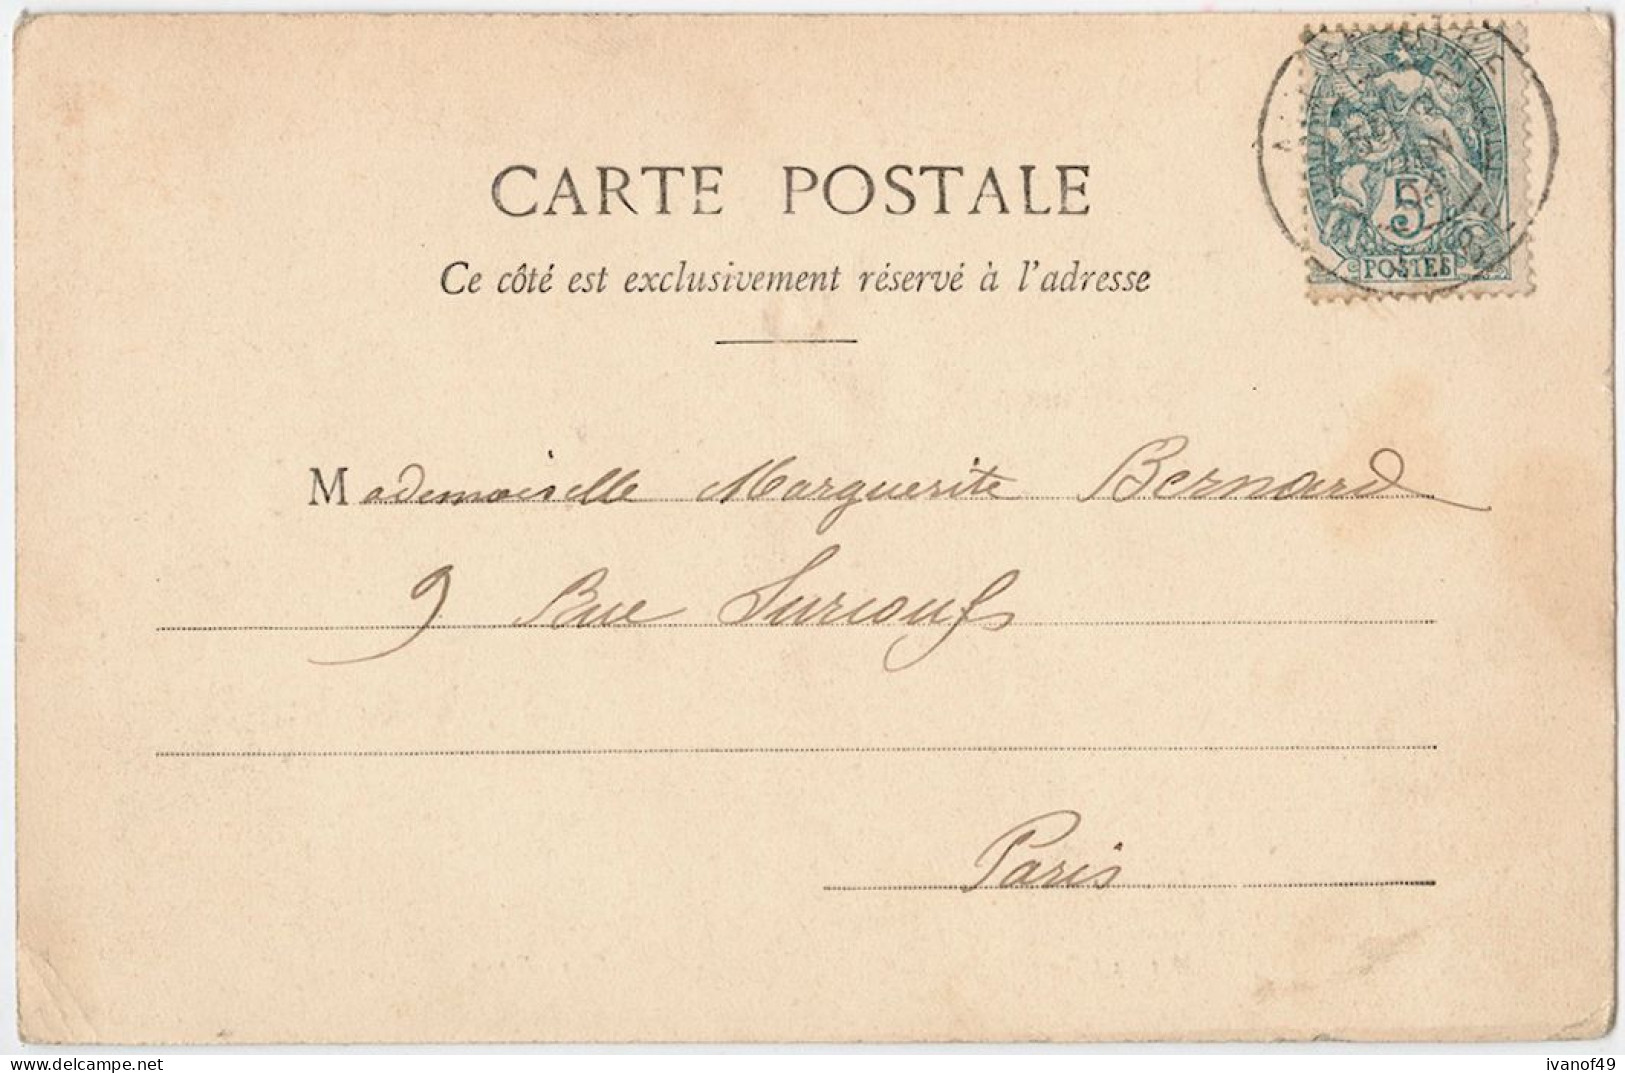 CARTE POSTALE
Ce côté est exclusivement réservé à l'adresse
5c
POSTES
Mademoiselle Marguerite Bernard
9 Rue Surcouf
Paris
delcampe.net
ivanof49